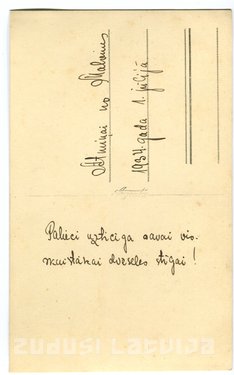 Atmiņai no Malvines
1934. gada 1. jūlijā
Palieci uzticīga savai vis-
skaistākai dvēseles stīgai!
ZUDUSI LATVIJA